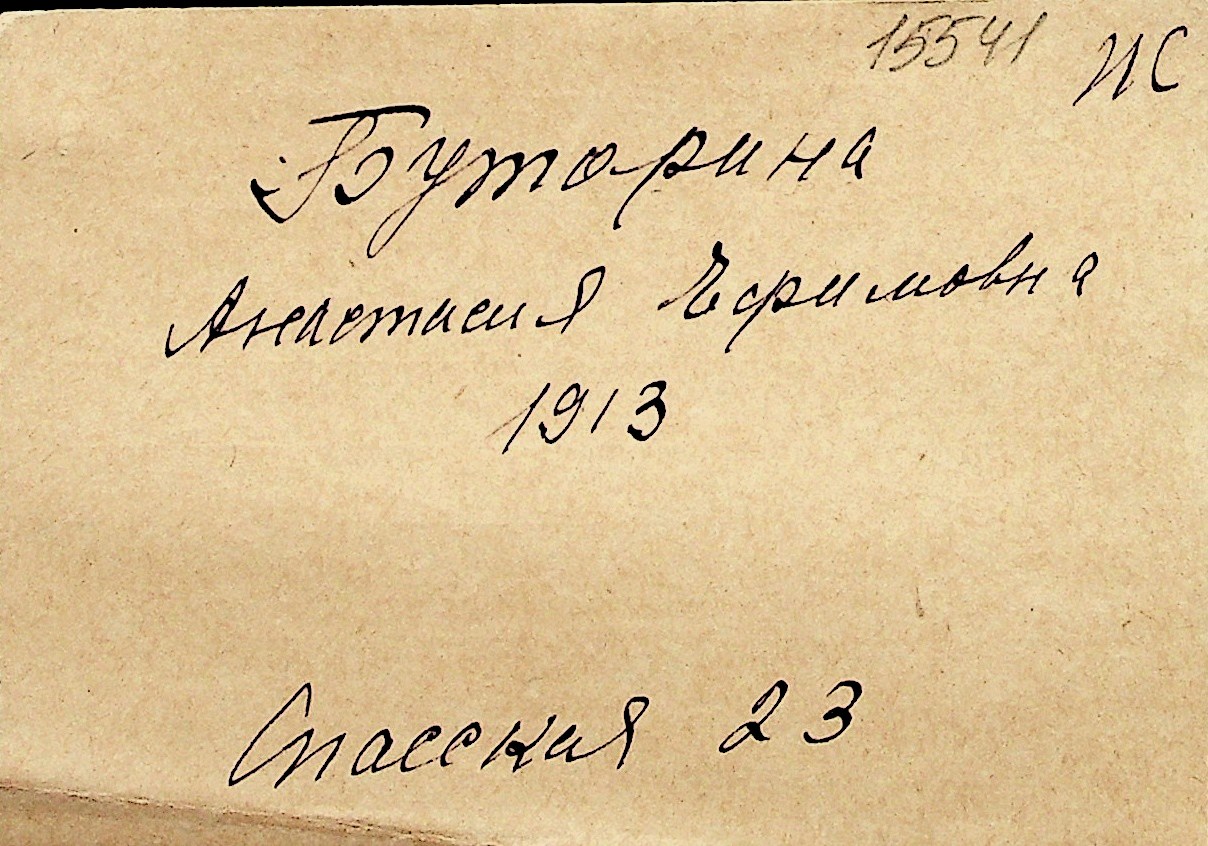 15541 ИС
Буторина
Анастасия Ефимовна
1913
Спасская 23